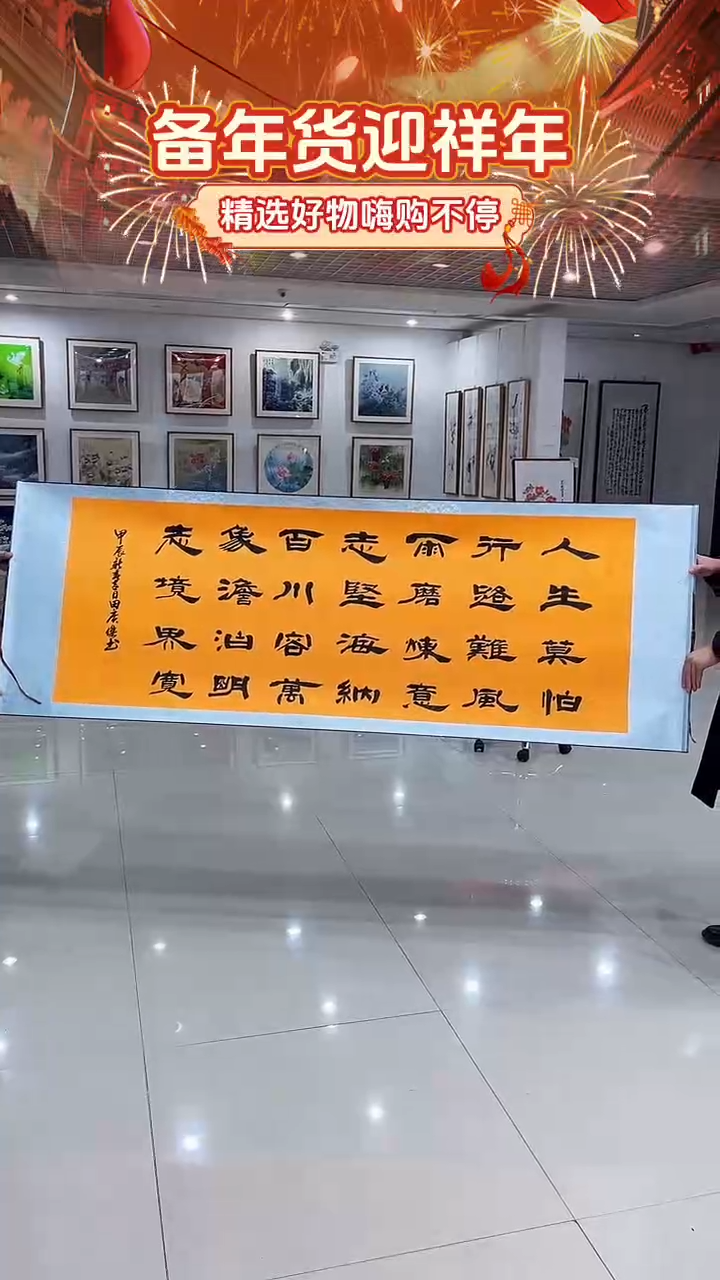 备年货迎祥年
精选好物嗨购不停
人生莫怕
行路難風
雨磨煉意
志堅海納
百川容萬
象澹泊明
志境界寬
甲辰